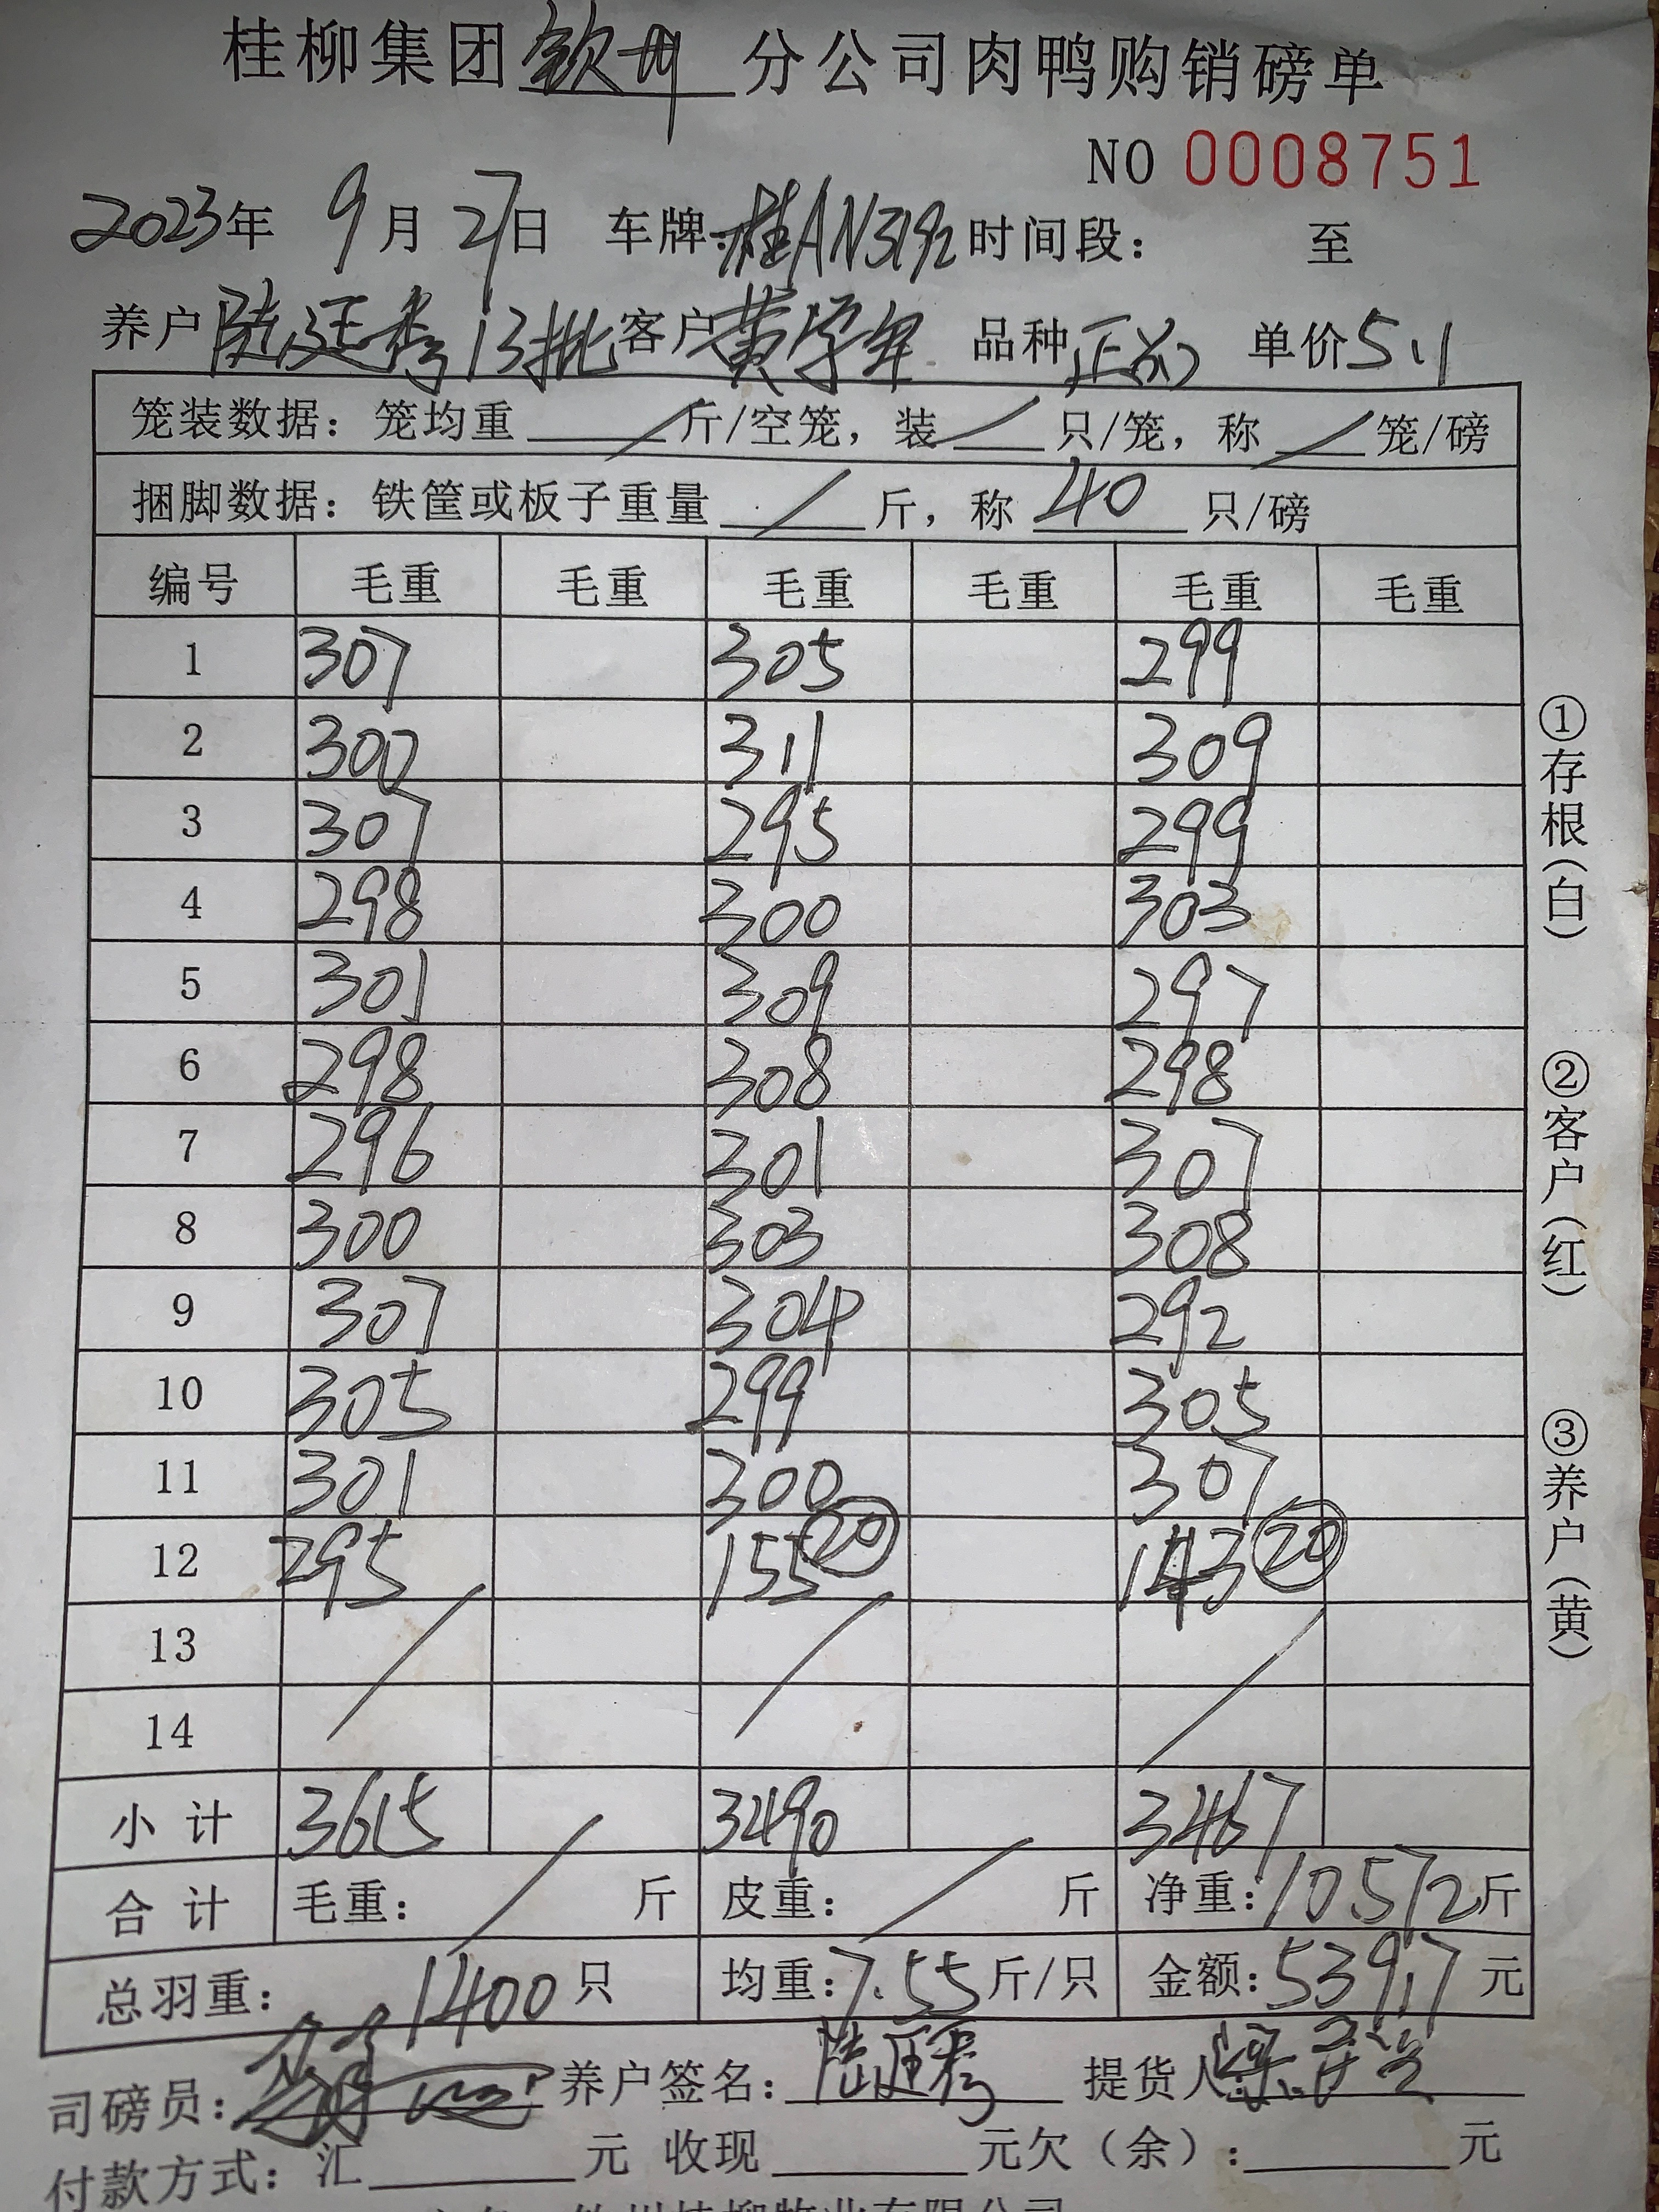 桂柳集团钦州分公司肉鸭购销磅单
NO 0008751
2023年 9月 27日 车牌:桂AN3192 时间段: 至
养户 陆廷秀 13批 客户 黄学年 品种 单价 5.1
笼装数据：笼均重 / 斤/空笼，装 / 只/笼，称 / 笼/磅
捆脚数据：铁筐或板子重量 / 斤，称 40 只/磅
编号 毛重 毛重 毛重 毛重 毛重 毛重
1 307 305 299
2 300 311 309
3 307 295 299
4 298 300 303
5 301 309 297
6 298 308 298
7 296 301 307
8 300 303 308
9 307 304 292
10 305 299 305
11 301 300 307
12 295 155 ⑳ 143 ⑳
13 / / /
14
小计 3615 3490 3467
合计 毛重: / 斤 皮重: / 斤 净重:10572斤
总羽重: 1400只 均重:7.55斤/只 金额:53917元
司磅员: 养户签名: 陆廷秀 提货人:
付款方式: 汇 元 收现 元欠(余): 元
①存根(白) ②客户(红) ③养户(黄)